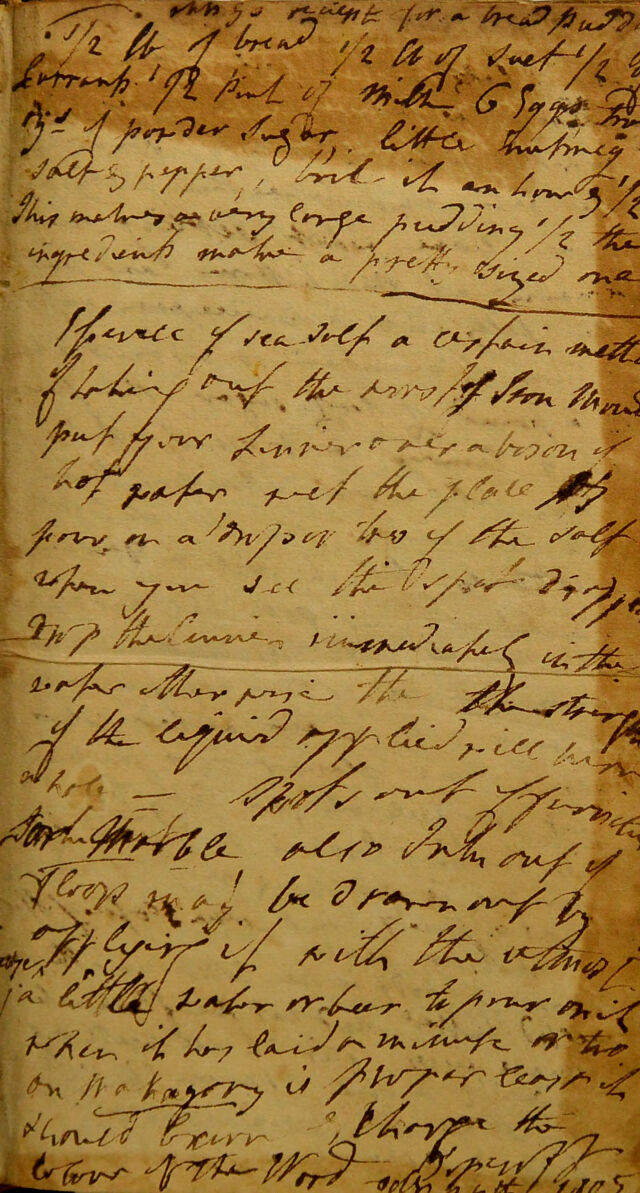 receipt for a bread pudd
1/2 lb of bread 1/2 lb of suet 1/2
Currants 1/2 pint of milk 6 Eggs
of powder sugar, little nutmeg
salt & pepper, boil it an hour & 1/2
This makes a very large pudding 1/2 the
ingredients make a pretty sized one
of sea salt a certain meth
of taking out the Iron Moul
put your Linnen over a bason of
hot water wet the place
pour on a drop or two of the salt
when you see the spot disapp
drop the Linnen immediately in the
water otherwise the the strength
of the liquid applied will burn
a hole — spots out of furnitur
Marble also Ink out of
Floors may be drawn out by
applying it with the utmost
a little water or beer to pour on it
when it has laid a minute or two
on Mahogony is proper least it
should burn & Change the
colour of the Wood